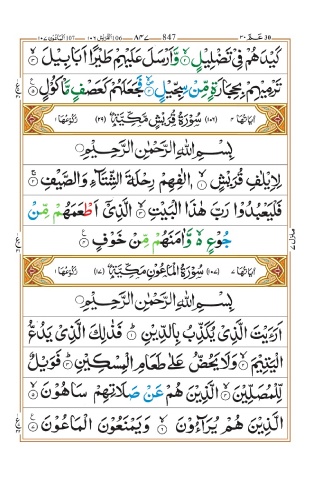 عمّ ٣٠ ٨٤٧ 847
كَيْدَهُمْ فِيْ تَضْلِيْلٍ ۙ وَّاَرْسَلَ عَلَيْهِمْ طَيْرًا اَبَابِيْلَ ۙ
تَرْمِيْهِمْ بِحِجَارَةٍ مِّنْ سِجِّيْلٍ ۙ فَجَعَلَهُمْ كَعَصْفٍ مَّاْكُوْلٍ
اٰيَاتُهَا ٤ (١٠٦) سُوْرَةُ قُرَيْشٍ مَكِّيَّةٌ (٢٩) رُكُوْعُهَا ١
بِسْمِ اللّٰهِ الرَّحْمٰنِ الرَّحِيْمِ
لِاِيْلٰفِ قُرَيْشٍ ۙ اٖلٰفِهِمْ رِحْلَةَ الشِّتَآءِ وَالصَّيْفِ ۚ
فَلْيَعْبُدُوْا رَبَّ هٰذَا الْبَيْتِ ۙ الَّذِيْٓ اَطْعَمَهُمْ مِّنْ
جُوْعٍ ۙ۬ وَّاٰمَنَهُمْ مِّنْ خَوْفٍ
اٰيَاتُهَا ٧ (١٠٧) سُوْرَةُ الْمَاعُوْنِ مَكِّيَّةٌ (١٧) رُكُوْعُهَا ١
بِسْمِ اللّٰهِ الرَّحْمٰنِ الرَّحِيْمِ
اَرَءَيْتَ الَّذِيْ يُكَذِّبُ بِالدِّيْنِ ؕ فَذٰلِكَ الَّذِيْ يَدُعُّ
الْيَتِيْمَ ۙ وَلَا يَحُضُّ عَلٰى طَعَامِ الْمِسْكِيْنِ ؕ فَوَيْلٌ
لِّلْمُصَلِّيْنَ ۙ الَّذِيْنَ هُمْ عَنْ صَلَاتِهِمْ سَاهُوْنَ ۙ
الَّذِيْنَ هُمْ يُرَآءُوْنَ ۙ وَيَمْنَعُوْنَ الْمَاعُوْنَ